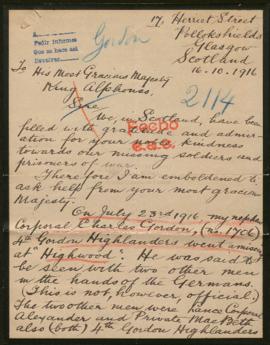 17, Herriet Street
Pollokshields
Glasgow
Scotland
16.10.1916
A
Pedir informes
Que se hace asi
Gordon
To His Most Gracious Majesty
King Alphonso.
Sire
2114
We, in Scotland, have been
filled with gratitude and admir-
ation for your great kindness
towards our missing soldiers and
prisoners of war.
Hecho
Therefore I am emboldened to
ask help from your most gracious
Majesty.
On July 23rd 1916 my nephew
Corporal Charles Gordon,
4th Gordon Highlanders went amissing
at "Highwood". He was said to
be seen with two other men
in the hands of the Germans.
(This is not, however, official.)
The two other men were Lance Corporal
Alexander and Private MacBeth
also (both) 4th Gordon Highlanders